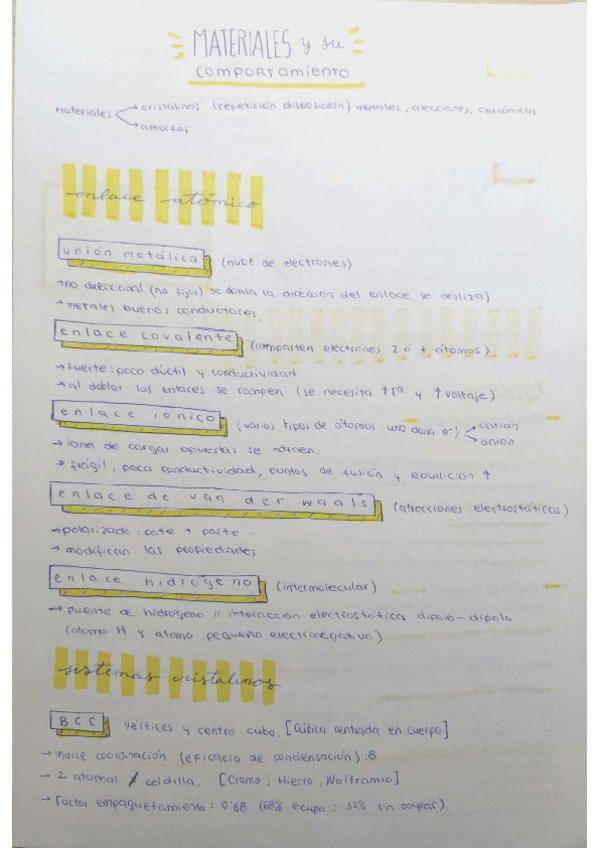 MATERIALES y su
COMPORTAMIENTO
Materiales → cristalinos (repetición disposición) metales, aleaciones, cerámicas.
→ amorfos
enlace atómico
unión metálica (nube de electrones)
→ no direccional (no fijos) se dobla la dirección del enlace se desliza)
→ metales buenos conductores.
enlace covalente (comparten electrones 2 ó + átomos)
→ fuerte: poco dúctil y conductividad
→ al doblar los enlaces se rompen (se necesita ↑Tª y ↑ voltaje)
enlace iónico (varios tipos de átomos uno dona e-) → catión
→ anión
→ iones de cargas opuestas se atraen.
→ frágil, poca conductividad, puntos de fusión y ebullición ↑
enlace de van der waals (atracciones electrostáticas)
→ polarizado: parte + parte -
→ modifican las propiedades
enlace hidrógeno (intermolecular)
→ puente de hidrógeno // interacción electrostática dipolo-dipolo
(átomo H y átomo pequeño electronegativo)
sistemas cristalinos
BCC vértices y centro cubo. [Cúbica centrada en cuerpo]
→ índice coordinación (eficacia de condensación): 8
→ 2 átomos / celdilla. [Cromo, Hierro, Wolframio]
→ Factor empaquetamiento: 0'68 (68% ocupa; 32% sin ocupar)